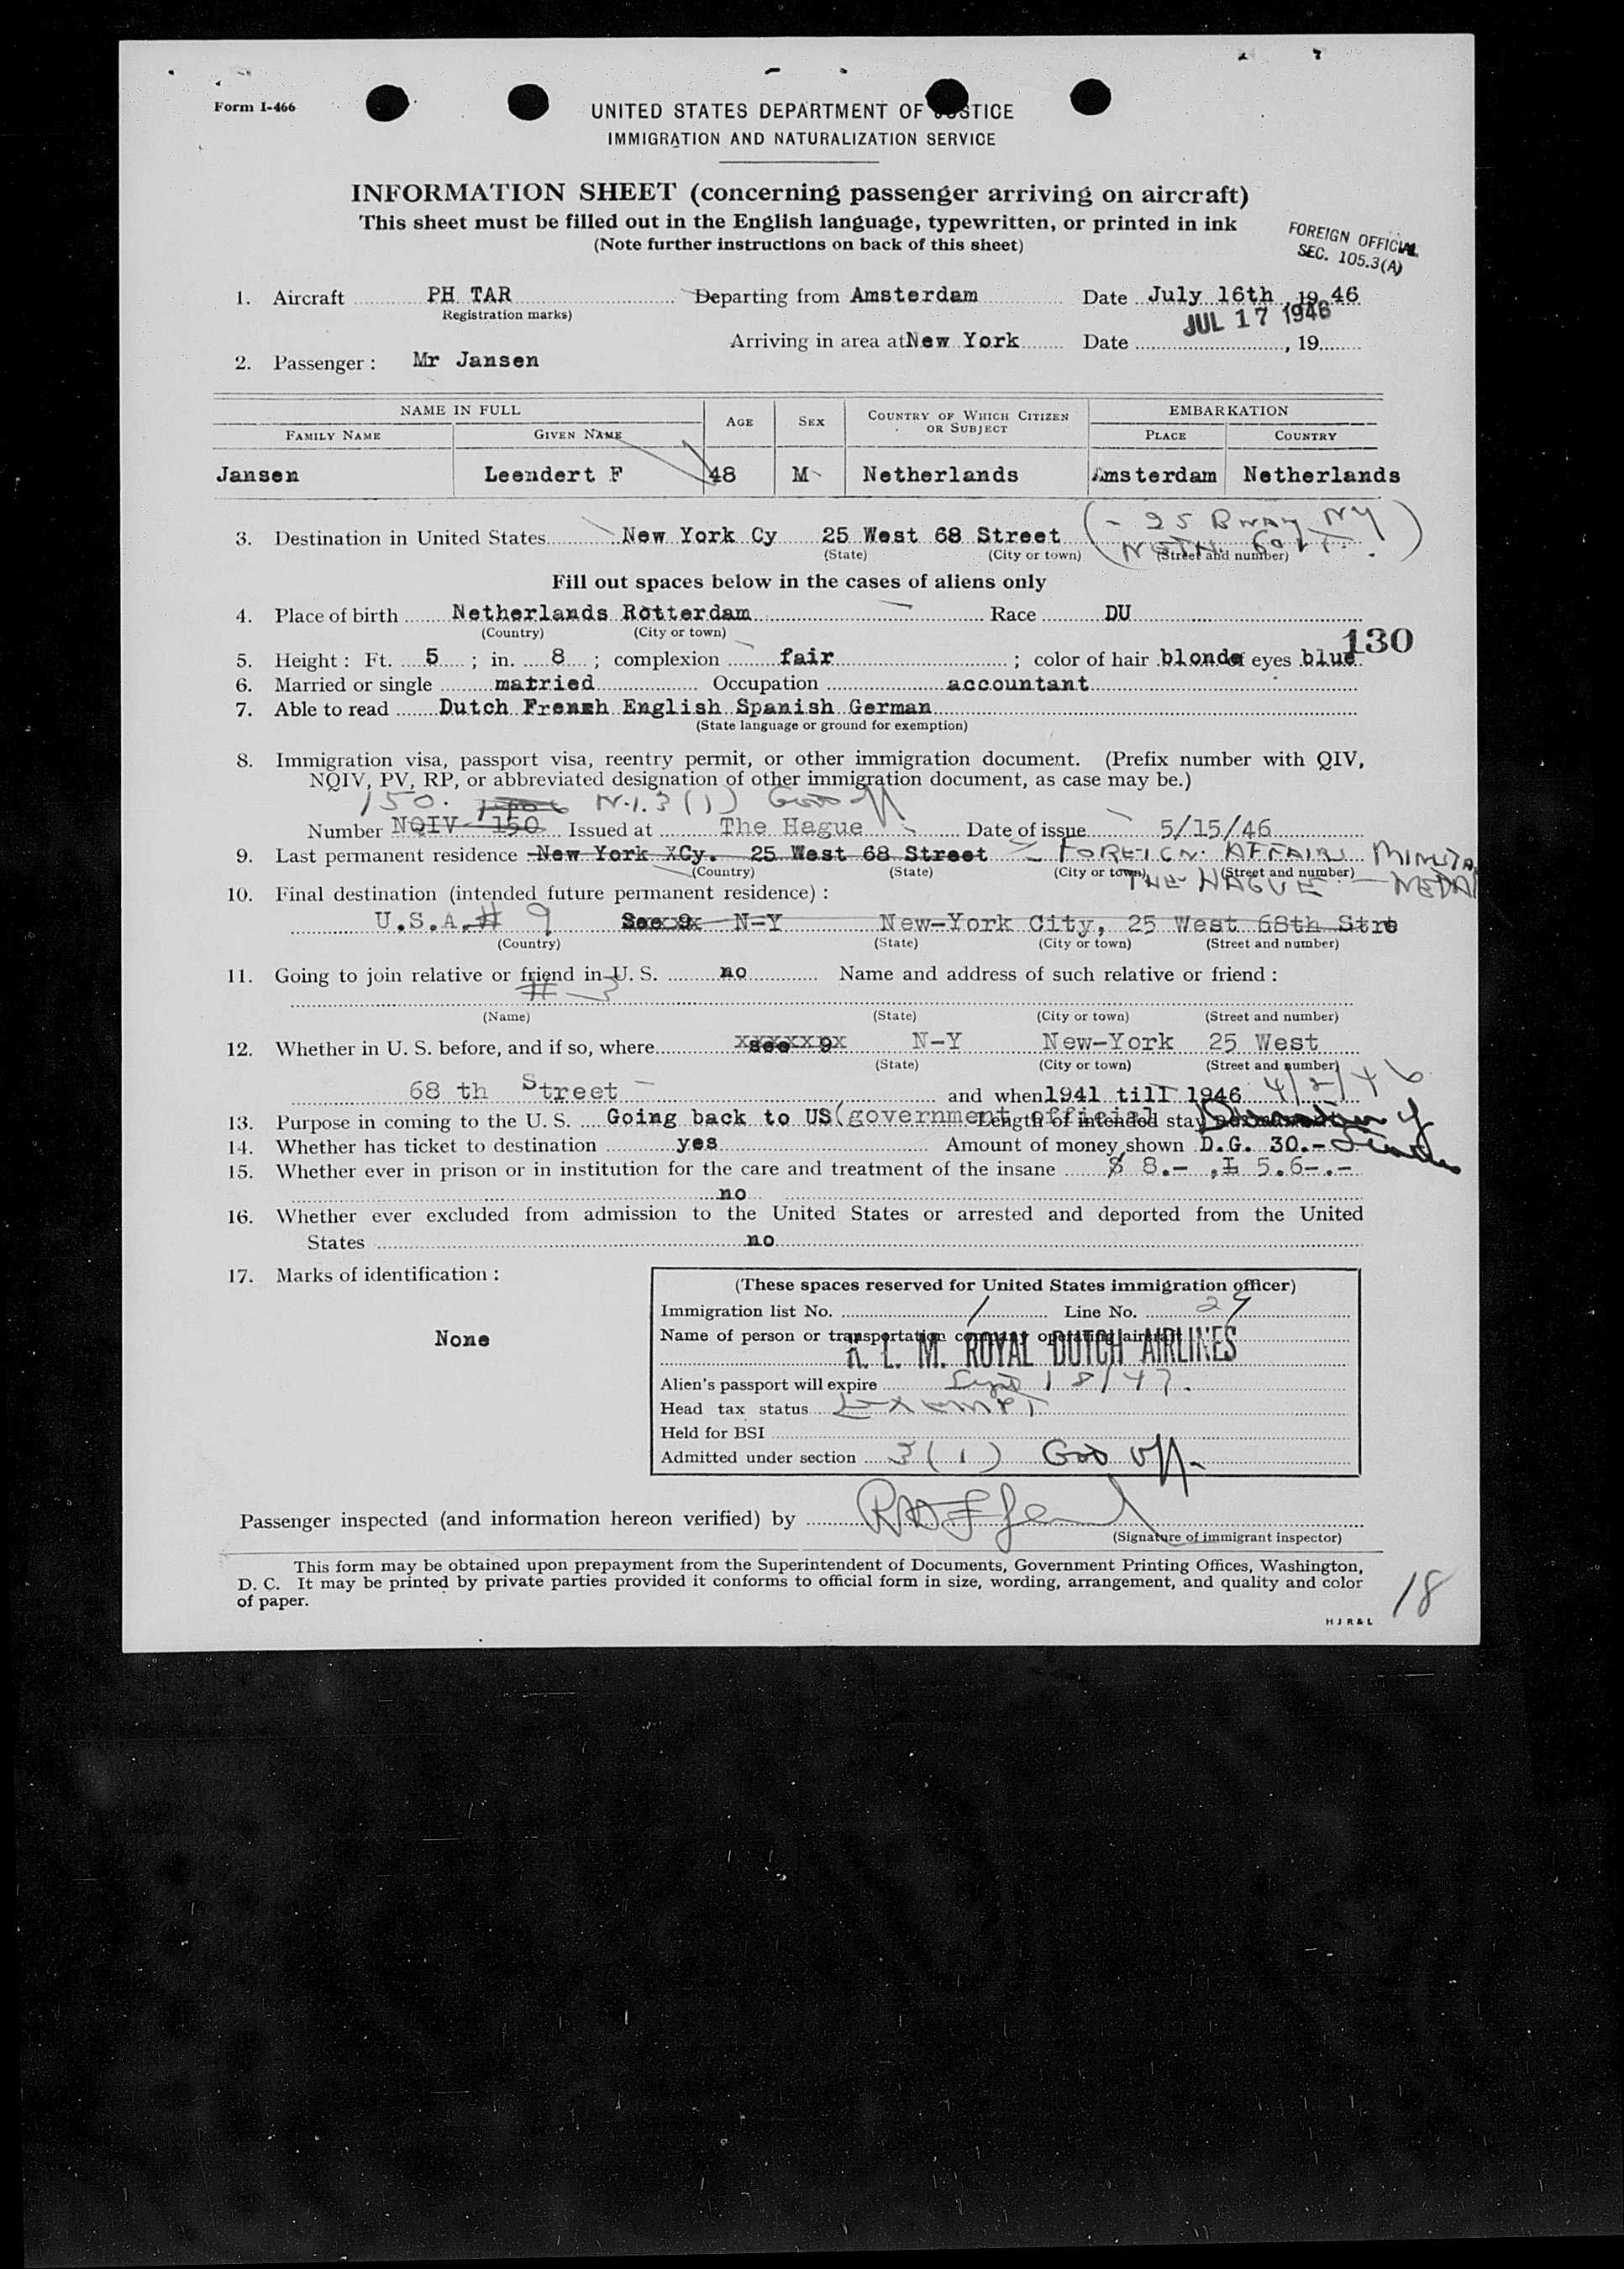 Form I-466
UNITED STATES DEPARTMENT OF JUSTICE
IMMIGRATION AND NATURALIZATION SERVICE
INFORMATION SHEET (concerning passenger arriving on aircraft)
This sheet must be filled out in the English language, typewritten, or printed in ink
(Note further instructions on back of this sheet)
FOREIGN OFFICIAL
SEC. 105.3(A)
1. Aircraft PH TAR Departing from Amsterdam Date July 16th, 19 46
Registration marks)
JUL 17 1946
Arriving in area at New York Date , 19
2. Passenger : Mr Jansen
NAME IN FULL AGE SEX COUNTRY OF WHICH CITIZEN OR SUBJECT EMBARKATION
FAMILY NAME GIVEN NAME PLACE COUNTRY
Jansen Leendert F 48 M Netherlands Amsterdam Netherlands
(- 25 Bway NY
3. Destination in United States New York Cy 25 West 68 Street NETH. GOVT. )
(State) (City or town) (Street and number)
Fill out spaces below in the cases of aliens only
4. Place of birth Netherlands Rotterdam Race DU
(Country) (City or town)
130
5. Height : Ft. 5 ; in. 8 ; complexion fair ; color of hair blonde eyes blue
6. Married or single matried Occupation accountant
7. Able to read Dutch French English Spanish German
(State language or ground for exemption)
8. Immigration visa, passport visa, reentry permit, or other immigration document. (Prefix number with QIV,
NQIV, PV, RP, or abbreviated designation of other immigration document, as case may be.)
150. N.I. 3(1) Gov off
Number NQIV 150 Issued at The Hague Date of issue 5/15/46
9. Last permanent residence New York XCy. 25 West 68 Street FOREIGN AFFAIRS
(Country) (State) (City or town) (Street and number)
THE HAGUE
10. Final destination (intended future permanent residence) :
U.S.A. # 9 See 9 N-Y New-York City, 25 West 68th Stre
(Country) (State) (City or town) (Street and number)
11. Going to join relative or friend in U. S. no Name and address of such relative or friend :
# 3
(Name) (State) (City or town) (Street and number)
12. Whether in U. S. before, and if so, where see 9 N-Y New-York 25 West
(State) (City or town) (Street and number)
68 th Street and when 1941 till 1946 4/2/46
13. Purpose in coming to the U. S. Going back to US (government official) Length of intended stay Duration of
14. Whether has ticket to destination yes Amount of money shown D.G. 30.-
15. Whether ever in prison or in institution for the care and treatment of the insane $ 8.- , £ 5.6-.-
no
16. Whether ever excluded from admission to the United States or arrested and deported from the United
States no
17. Marks of identification :
None
(These spaces reserved for United States immigration officer)
Immigration list No. 1 Line No. 29
Name of person or transportation company operating aircraft
K. L. M. ROYAL DUTCH AIRLINES
Alien's passport will expire Sept 18/47.
Head tax status Exempt
Held for BSI
Admitted under section 3(1) Gov off.
Passenger inspected (and information hereon verified) by
(Signature of immigrant inspector)
This form may be obtained upon prepayment from the Superintendent of Documents, Government Printing Offices, Washington,
D. C. It may be printed by private parties provided it conforms to official form in size, wording, arrangement, and quality and color
of paper.
18
H J R & L